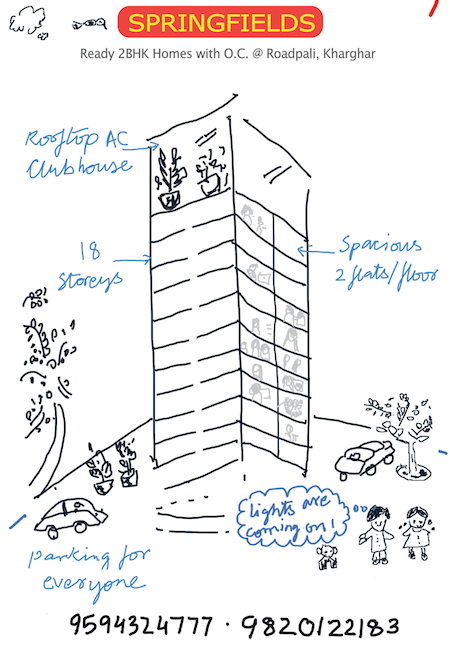 SPRINGFIELDS
Ready 2BHK Homes with O.C. @ Roadpali, Kharghar
Rooftop AC
Clubhouse
18
Storeys
Spacious
2 flats/floor
Lights are
coming on!
parking for
everyone
9594324777 · 9820122183